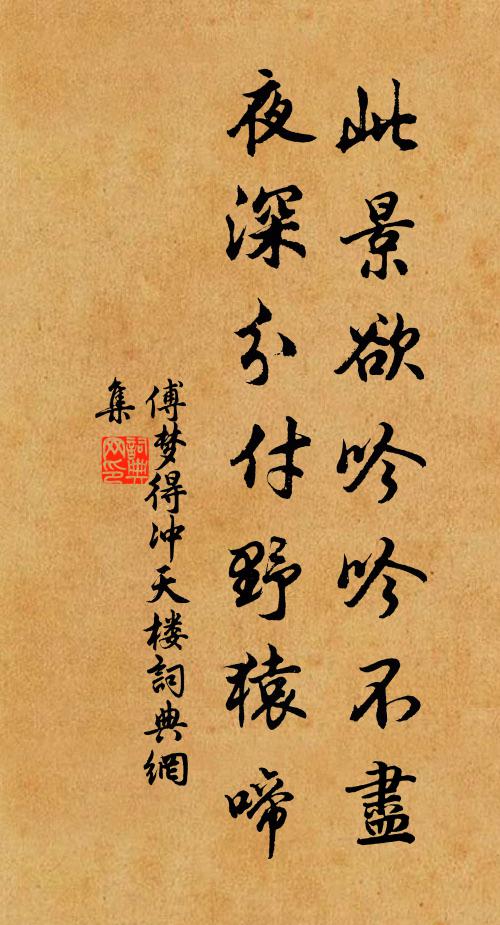 此景欲吟吟不盡
夜深分付野猿啼
傅梦得冲天楼詞典網
集
詞典
网印